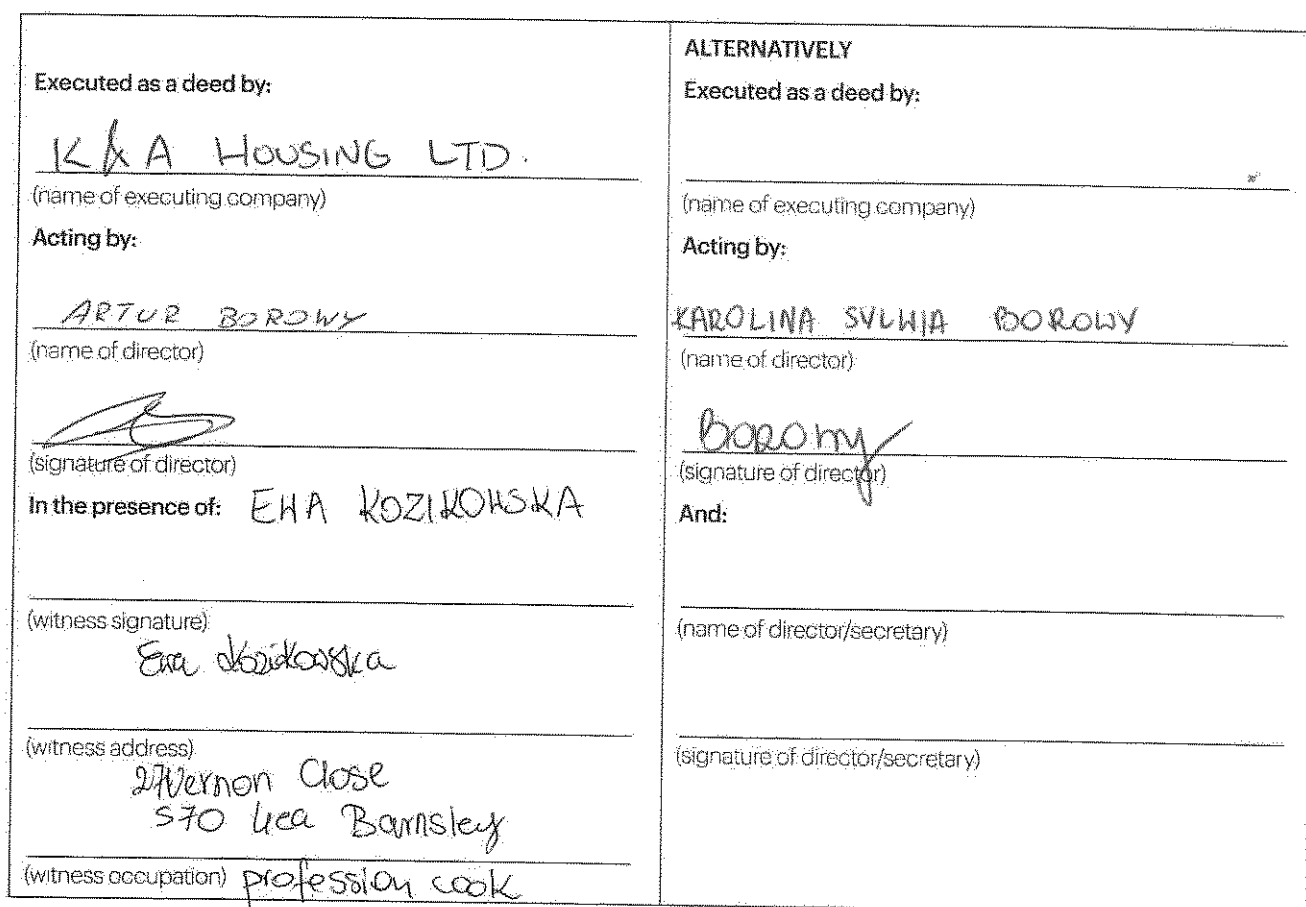 Executed as a deed by:
K & A HOUSING LTD.
(name of executing company)
Acting by:
ARTUR BOROWY
(name of director)
(signature of director)
In the presence of: EWA KOZIKOWSKA
(witness signature)
Ewa Kozikowska
(witness address)
27 Vernon Close
S70 Barnsley
(witness occupation) profession cook
ALTERNATIVELY
Executed as a deed by:
(name of executing company)
Acting by:
KAROLINA SYLWIA BOROWY
(name of director)
Borowy
(signature of director)
And:
(name of director/secretary)
(signature of director/secretary)